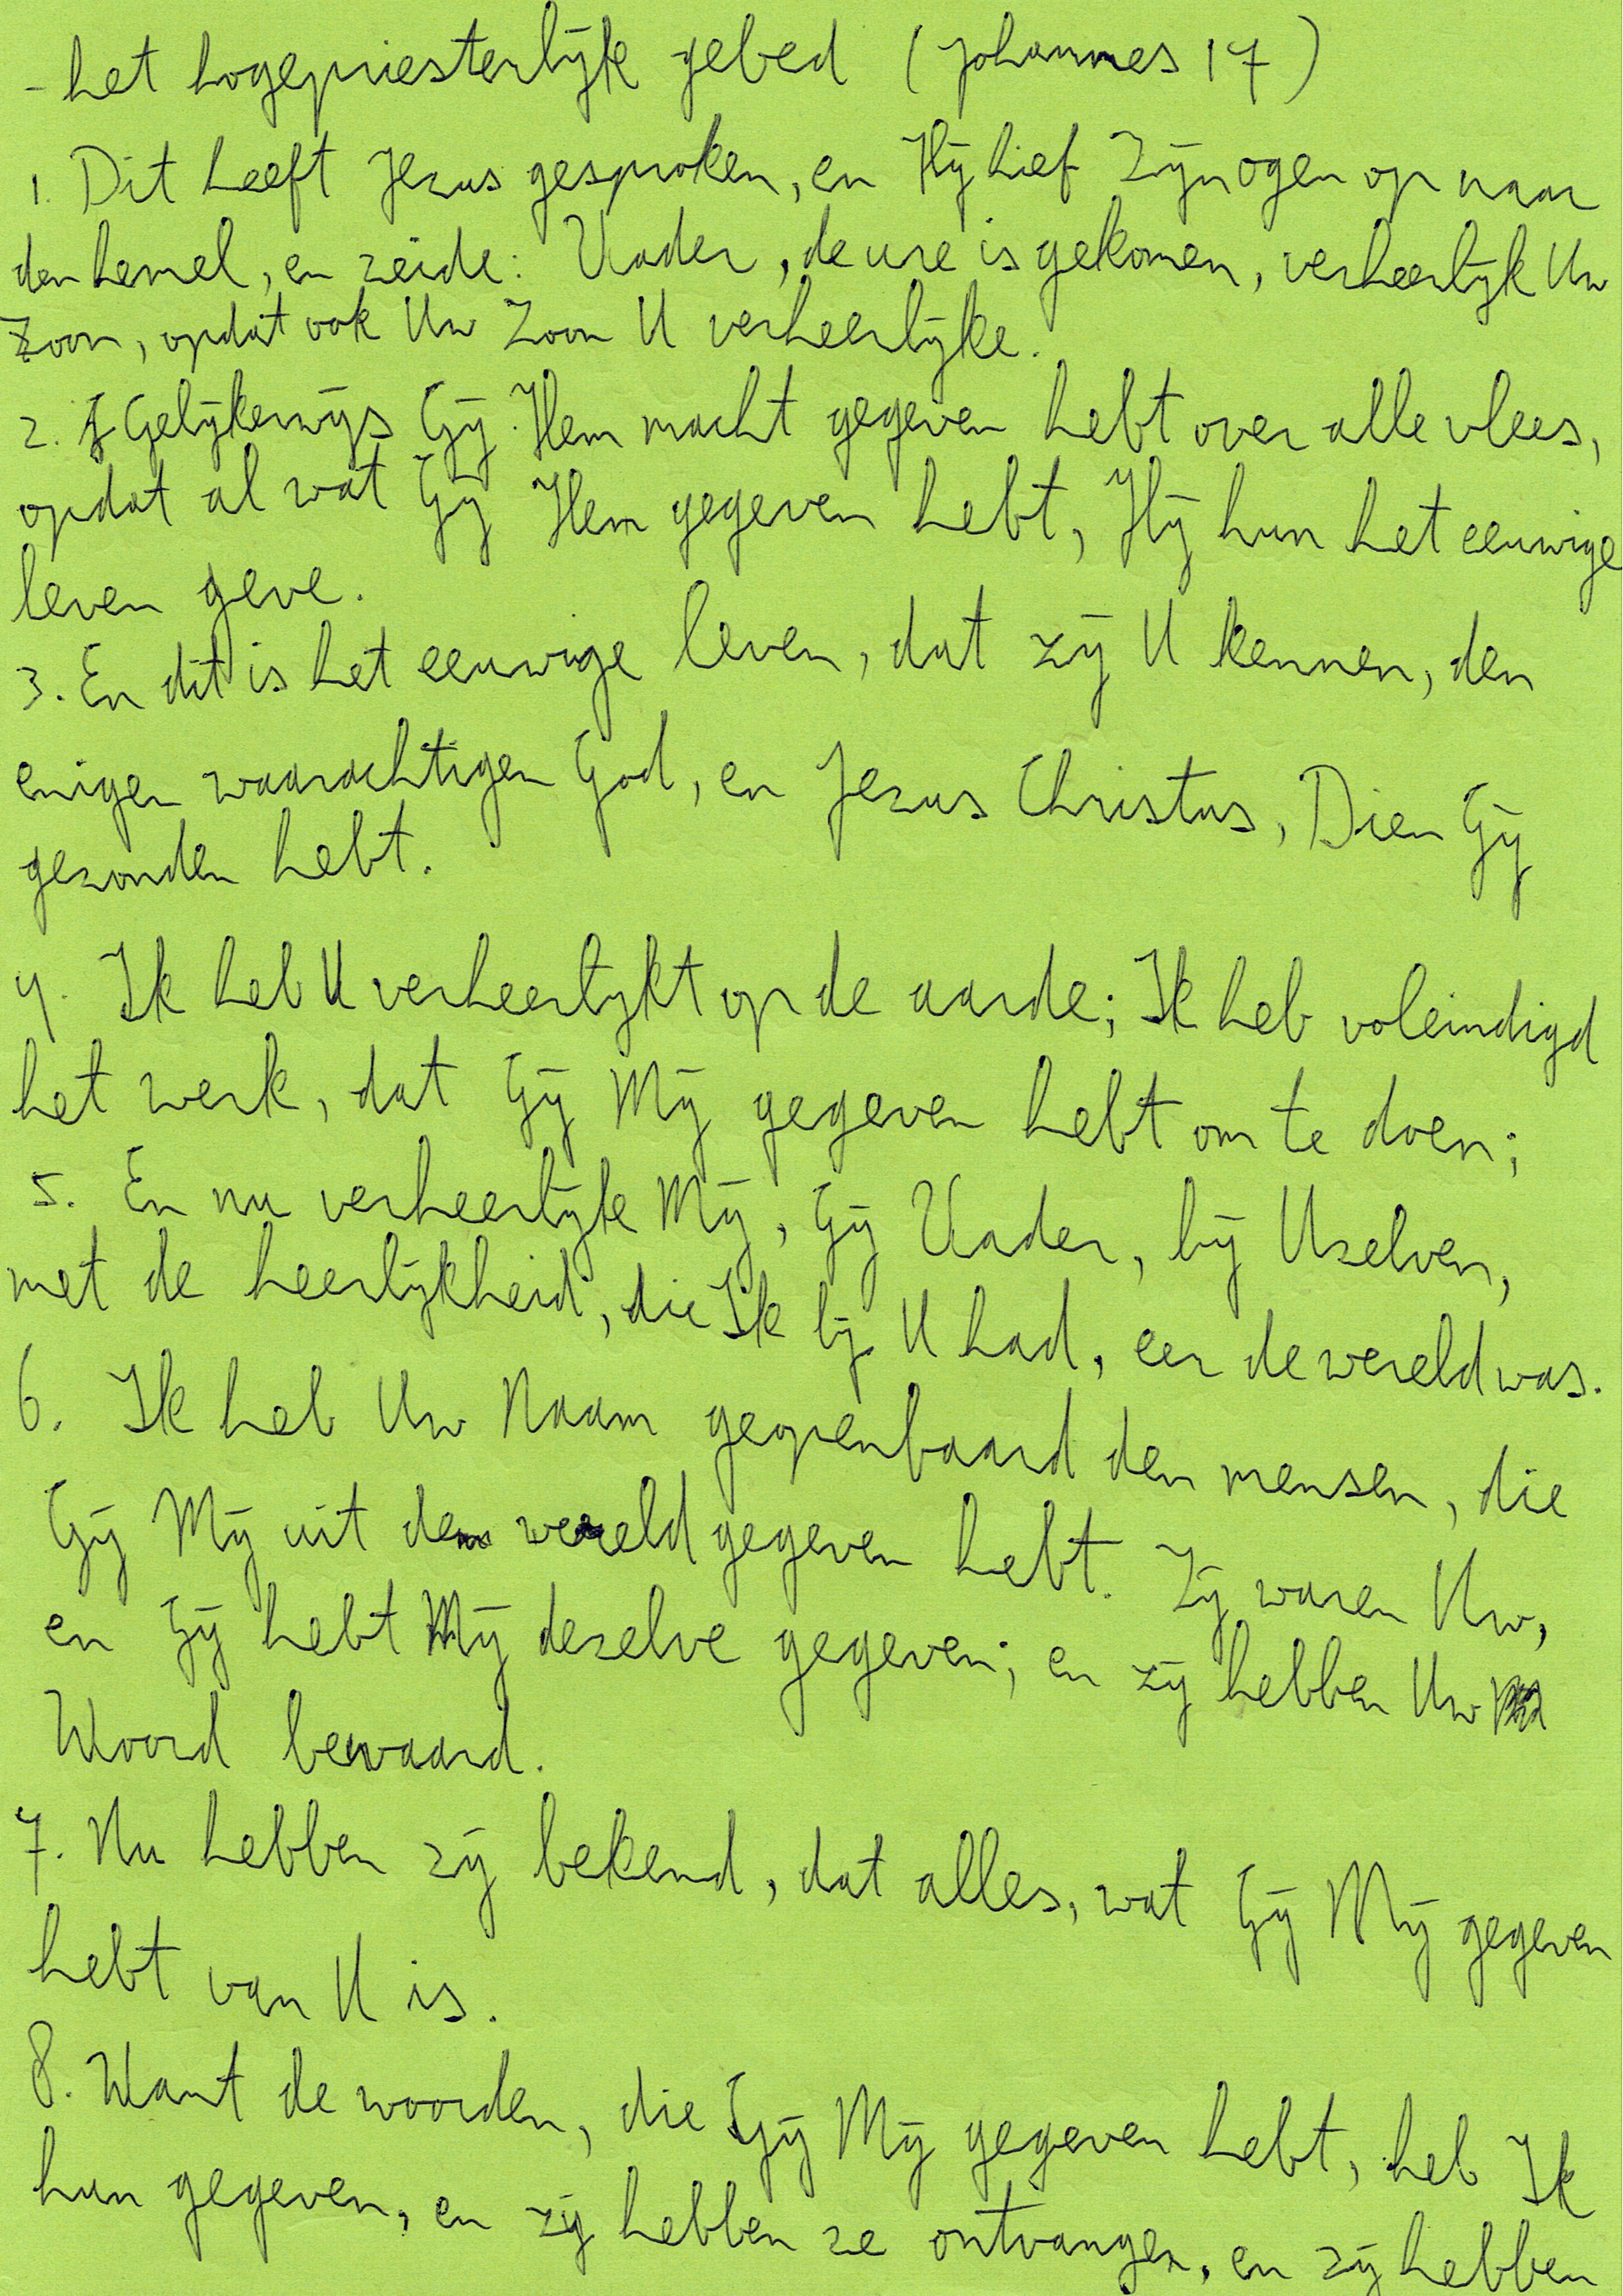 - het hogepriesterlijk gebed (Johannes 17)
1. Dit heeft Jezus gesproken, en Hij hief Zijn ogen op naar
den hemel, en zeide: Vader, de ure is gekomen, verheerlijk Uw
Zoon, opdat ook Uw Zoon U verheerlijke.
2. Gelijkerwijs Gij Hem macht gegeven hebt over alle vlees,
opdat al wat Gij Hem gegeven hebt, Hij hun het eeuwige
leven geve.
3. En dit is het eeuwige leven, dat zij U kennen, den
enigen waarachtigen God, en Jezus Christus, Dien Gij
gezonden hebt.
4. Ik heb U verheerlijkt op de aarde; Ik heb voleindigd
het werk, dat Gij Mij gegeven hebt om te doen;
5. En nu verheerlijke Mij, Gij Vader, bij Uzelven,
met de heerlijkheid, die Ik bij U had, eer de wereld was.
6. Ik heb Uw Naam geopenbaard den mensen, die
Gij Mij uit de wereld gegeven hebt. Zij waren Uw,
en Gij hebt Mij dezelve gegeven; en zij hebben Uw
Woord bewaard.
7. Nu hebben zij bekend, dat alles, wat Gij Mij gegeven
hebt van U is.
8. Want de woorden, die Gij Mij gegeven hebt, heb Ik
hun gegeven, en zij hebben ze ontvangen, en zij hebben